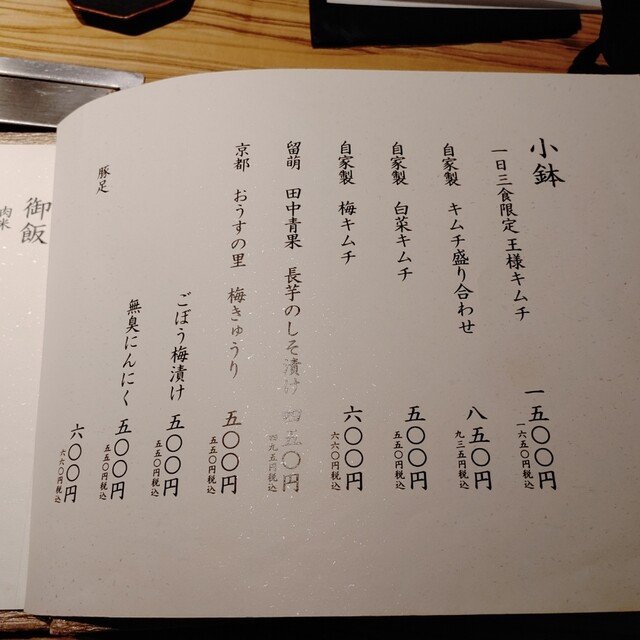 小鉢
一日三食限定 王様キムチ 一五〇〇円
一六五〇円税込
自家製 キムチ盛り合わせ 八五〇円
九三五円税込
自家製 白菜キムチ 五〇〇円
五五〇円税込
自家製 梅キムチ 六〇〇円
六六〇円税込
留萌 田中青果 長芋のしそ漬け 四五〇円
四九五円税込
京都 おうすの里 梅きゅうり 五〇〇円
五五〇円税込
ごぼう梅漬け 五〇〇円
五五〇円税込
無臭にんにく 五〇〇円
五五〇円税込
豚足 六〇〇円
六六〇円税込
御飯